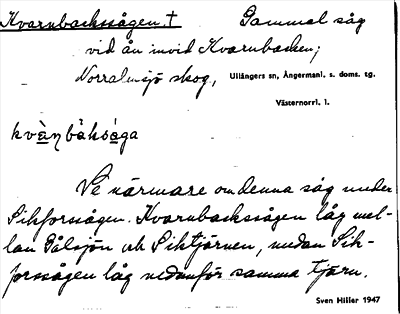 Kvarnbackssågen. † Gammal såg
vid ån invid Kvarnbacken;
Norralmsjö skog, Ullångers sn, Ångermanl. s. doms. tg.
Västernorrl. l.
kvàṇbàksåga
Se närmare om denna såg under
Sikforssågen. Kvarnbackssågen låg mel-
lan Gålsjön och Siktjärnen, medan Sik-
forssågen låg nedanför samma tjärn.
Sven Hiller 1947